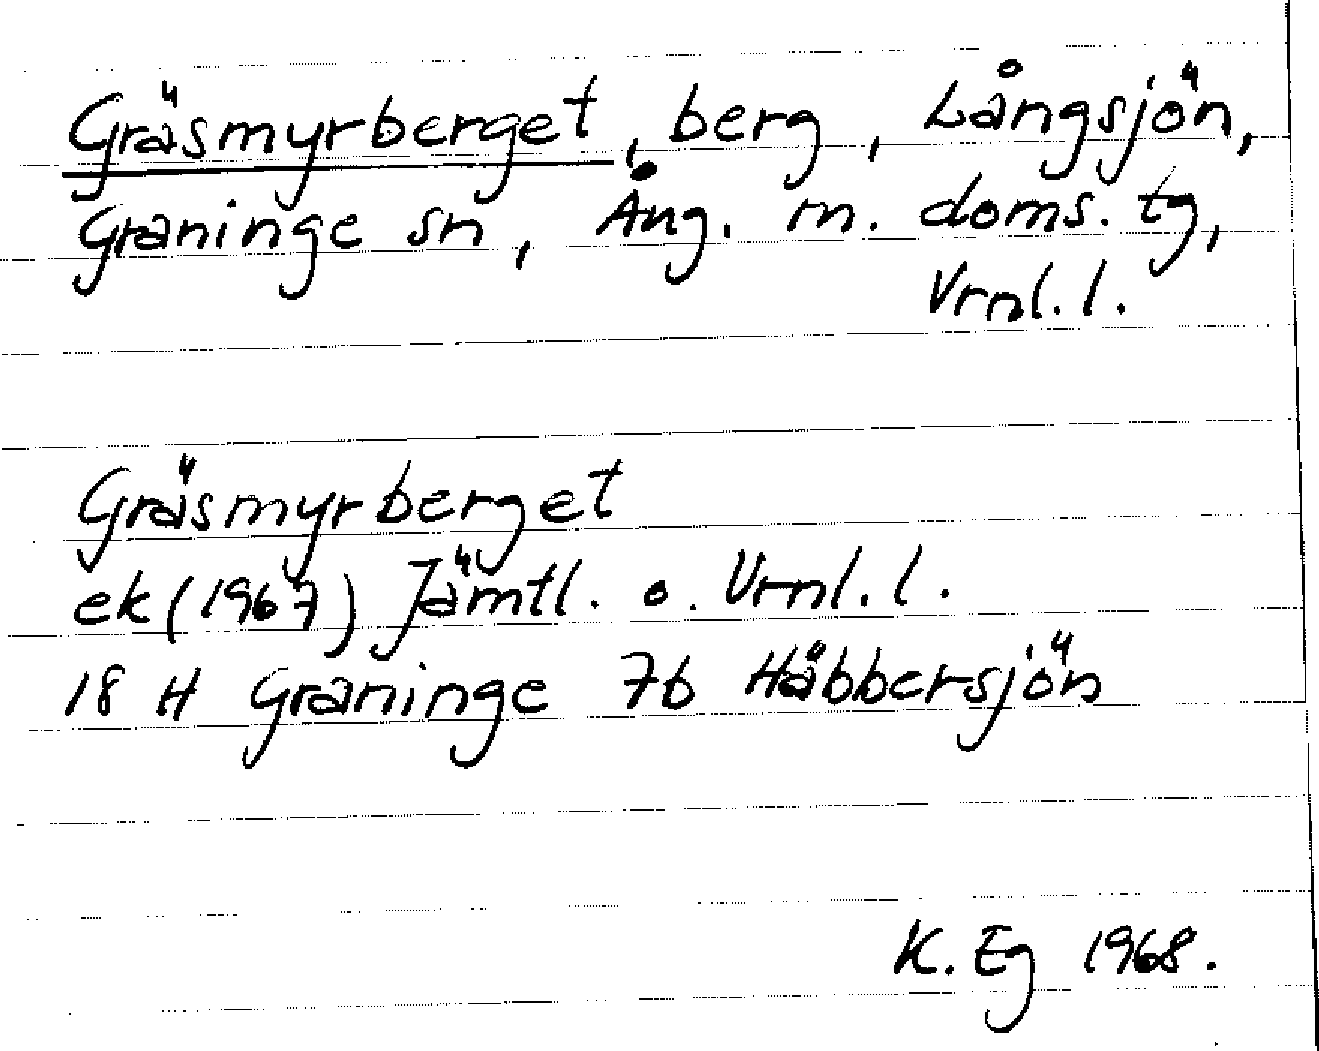 Gräsmyrberget, berg, Långsjön,
Graninge sn, Ång. m. doms. tg,
Vrnl. l.
Gräsmyrberget
ek (1967) Jämtl. o. Vrnl. l.
18 H Graninge 7b Håbbersjön
K. Eg 1968.